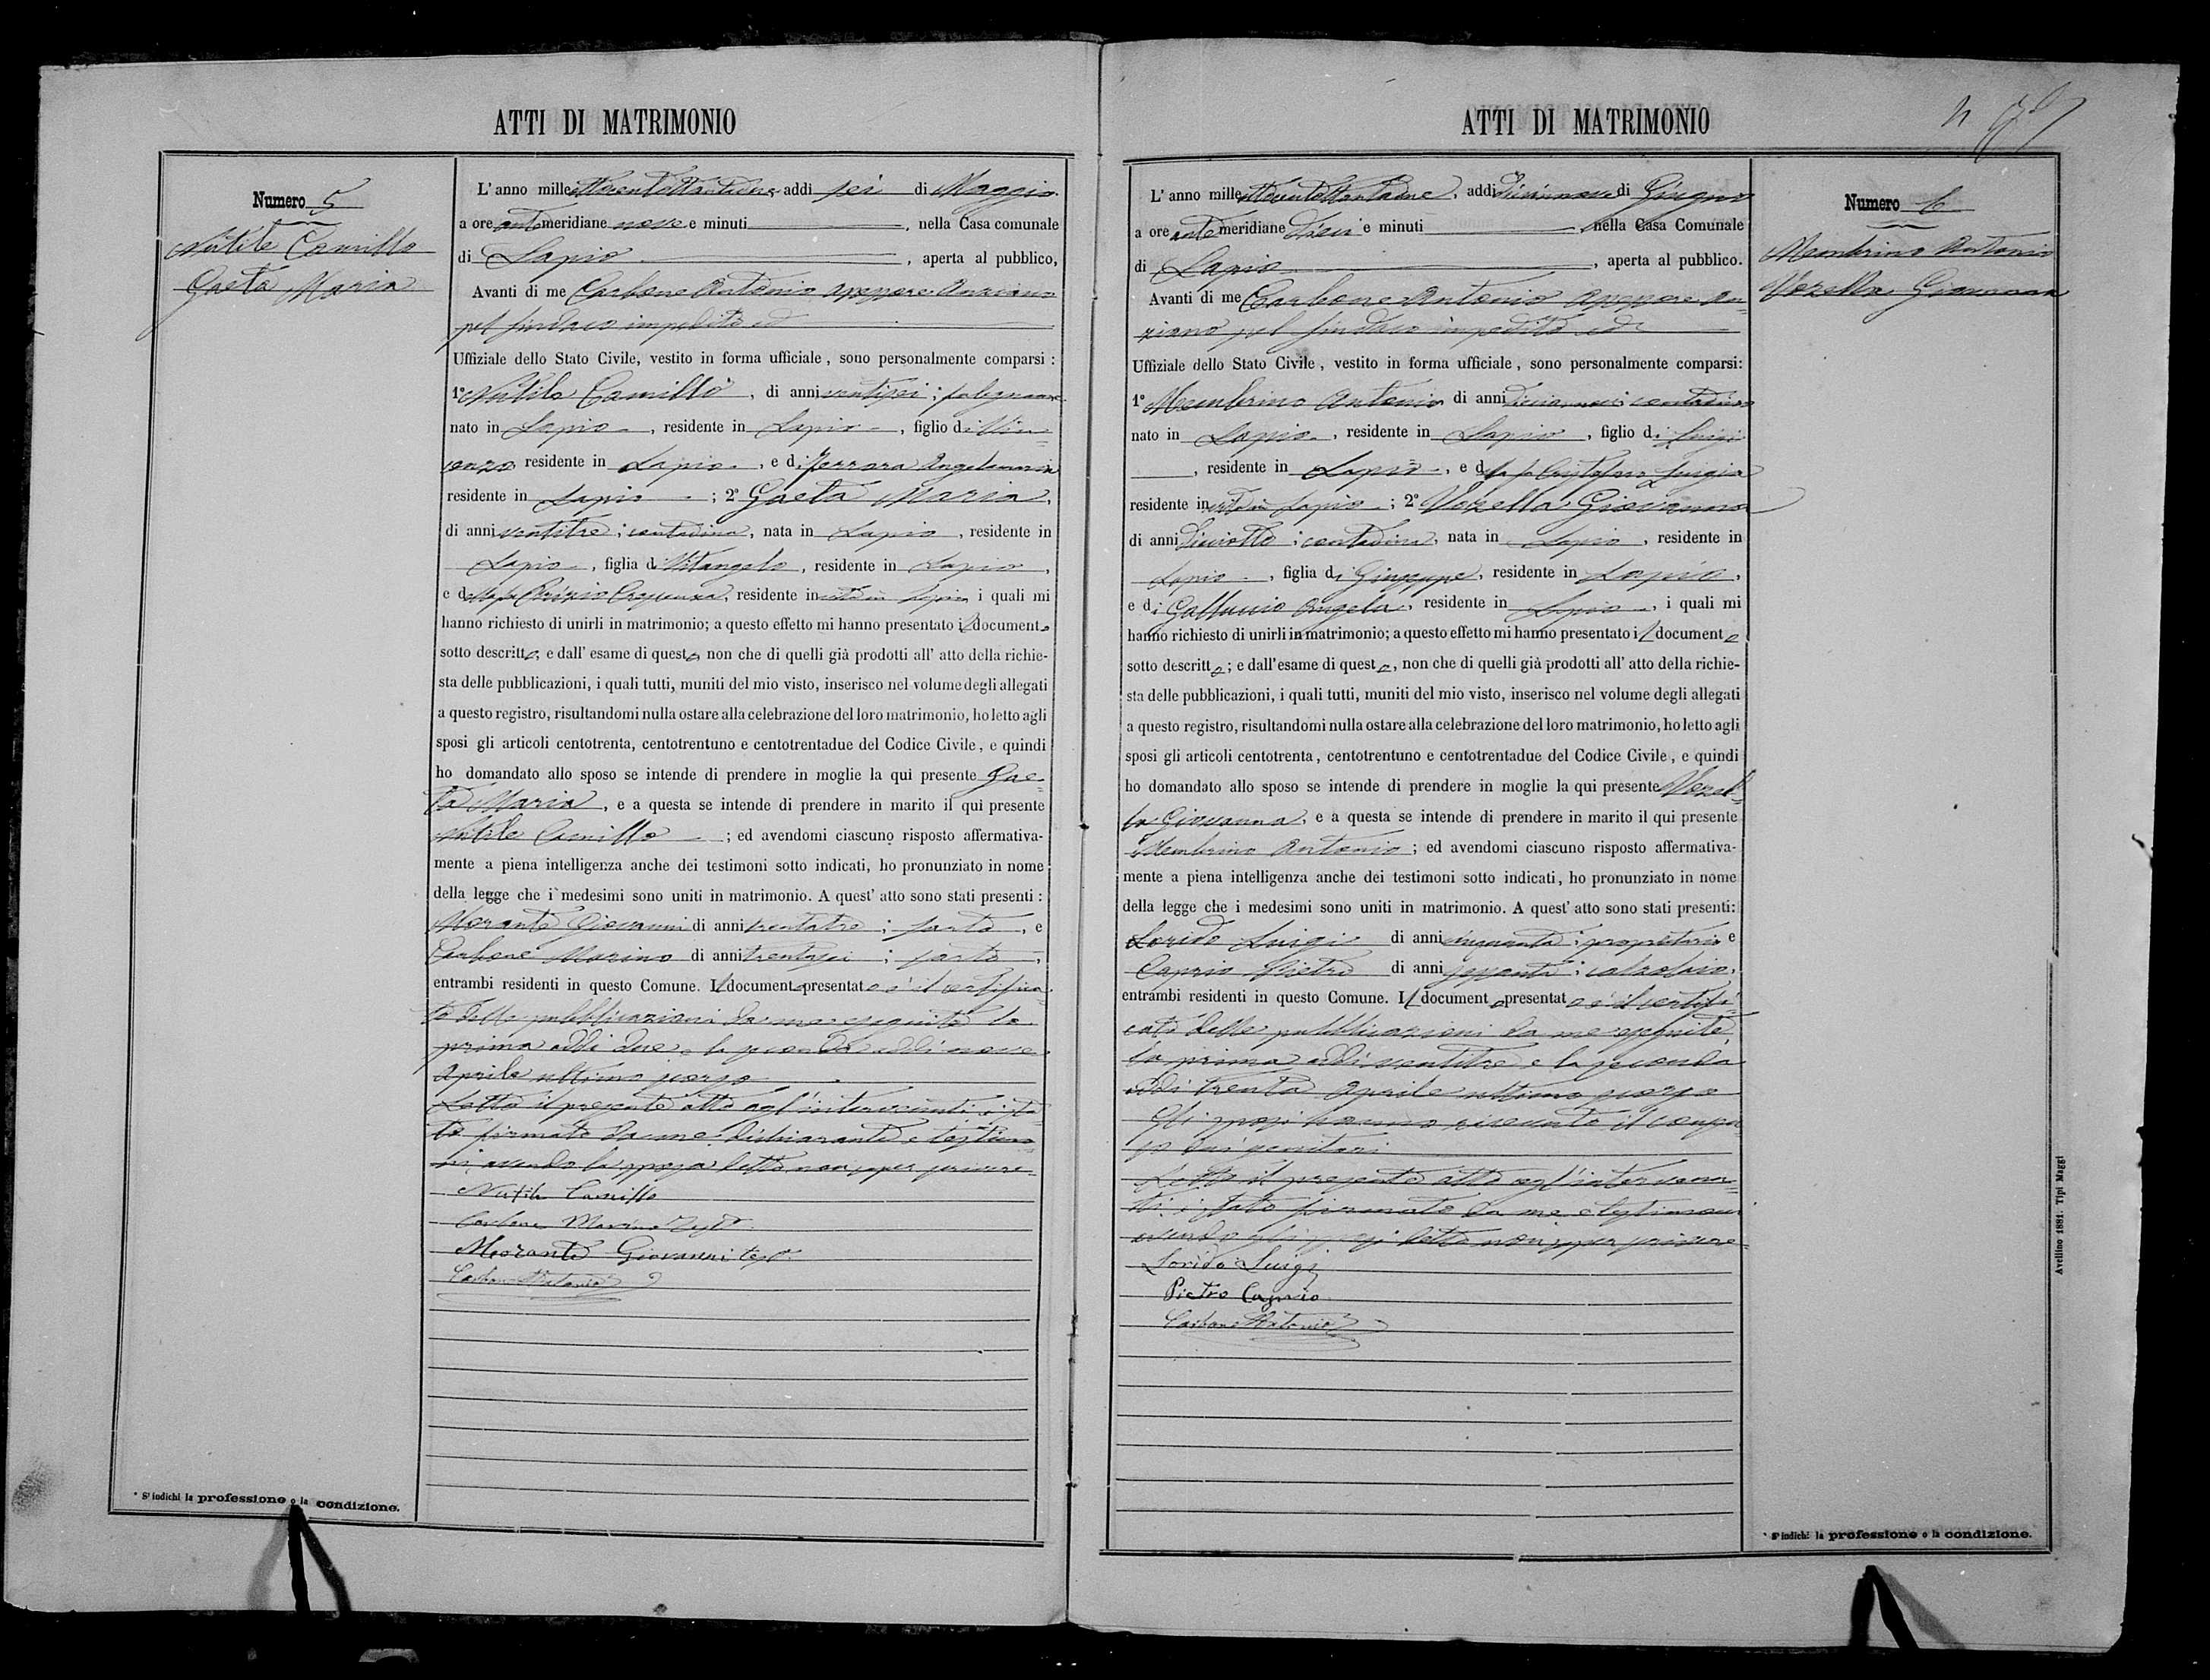 ATTI DI MATRIMONIO
Numero 5
Nutile Camillo
Gaeta Maria
L' anno milleottocentottantadue, addi sei di Maggio
a ore antimeridiane nove e minuti , nella Casa comunale
di Lapio , aperta al pubblico,
Avanti di me Carbone Antonio Assessore Anziano
pel Sindaco impedito ed
Uffiziale dello Stato Civile, vestito in forma ufficiale, sono personalmente comparsi :
1º Nutile Camillo , di anni ventisei ; falegname
nato in Lapio , residente in Lapio , figlio di Vin=
cenzo residente in Lapio , e di Ferrara Angelamaria
residente in Lapio ; 2º Gaeta Maria,
di anni ventitre ; contadina, nata in Lapio , residente in
Lapio , figlia di Vitangelo , residente in Lapio ,
e della fu residente in vita in Lapio i quali mi
hanno richiesto di unirli in matrimonio; a questo effetto mi hanno presentato il documento
sotto descritto; e dall' esame di questo, non che di quelli già prodotti all' atto della richie-
sta delle pubblicazioni, i quali tutti, muniti del mio visto, inserisco nel volume degli allegati
a questo registro, risultandomi nulla ostare alla celebrazione del loro matrimonio, ho letto agli
sposi gli articoli centotrenta, centotrentuno e centotrentadue del Codice Civile, e quindi
ho domandato allo sposo se intende di prendere in moglie la qui presente Gae=
ta Maria , e a questa se intende di prendere in marito il qui presente
Nutile Camillo ; ed avendomi ciascuno risposto affermativa-
mente a piena intelligenza anche dei testimoni sotto indicati, ho pronunziato in nome
della legge che i medesimi sono uniti in matrimonio. A quest' atto sono stati presenti :
Morante Giovanni di anni trentatre ; sarto , e
Carbone Marino di anni trentasei ; sarto ,
entrambi residenti in questo Comune. Il documento presentato è il certifica=
to delle pubblicazioni da me eseguite la
prima addi due e la seconda addi nove
Aprile ultimo scorso
Letto il presente atto agl'intervenuti è sta=
to firmato da me dichiarante e testimo
ni, avendo la sposa detto non saper scrivere
Nutile Camillo
Carbone Marino Test.
Morante Giovanni test.
Carbone Antonio
* S' indichi la professione o la condizione.
ATTI DI MATRIMONIO
Numero 6
Membrino Antonio
Vozella Giovanna
L' anno milleottocentottantadue, addi diciannove di Giugno
a ore antemeridiane dieci e minuti , nella Casa Comunale
di Lapio , aperta al pubblico.
Avanti di me Carbone Antonio Assessore An=
ziano pel Sindaco impedito ed
Uffiziale dello Stato Civile, vestito in forma ufficiale, sono personalmente comparsi:
1º Membrino Antonio di anni contadino
nato in Lapio , residente in Lapio , figlio di Luigi
, residente in Lapio , e della fu Luigia
residente in vita in Lapio ; 2º Vozella Giovanna
di anni diciotto ; contadina, nata in Lapio , residente in
Lapio , figlia di Giuseppe, residente in Lapio ,
e di Galluccio Angela, residente in Lapio , i quali mi
hanno richiesto di unirli in matrimonio; a questo effetto mi hanno presentato il documento
sotto descritto ; e dall'esame di questo , non che di quelli già prodotti all' atto della richie-
sta delle pubblicazioni, i quali tutti, muniti del mio visto, inserisco nel volume degli allegati
a questo registro, risultandomi nulla ostare alla celebrazione del loro matrimonio, ho letto agli
sposi gli articoli centotrenta, centotrentuno e centotrentadue del Codice Civile, e quindi
ho domandato allo sposo se intende di prendere in moglie la qui presente Vozel=
la Giovanna, e a questa se intende di prendere in marito il qui presente
Membrino Antonio ; ed avendomi ciascuno risposto affermativa-
mente a piena intelligenza anche dei testimoni sotto indicati, ho pronunziato in nome
della legge che i medesimi sono uniti in matrimonio. A quest' atto sono stati presenti:
Lorido Luigi di anni cinquanta ; proprietario e
Caprio Pietro di anni sessanta ; calzolaio,
entrambi residenti in questo Comune. Il documento presentato è il certifi=
cato delle pubblicazioni da me eseguite,
la prima addi ventitre e la seconda
addi trenta Aprile ultimo scorso
Gli sposi hanno ricevuto il consen=
so dai genitori
Letto il presente atto agl'intervenu=
ti è stato firmato da me e testimoni
avendo gli sposi detto non saper scrivere
Lorido Luigi
Pietro Caprio
Carbone Antonio
Avellino 1881. Tipi Maggi
* S' indichi la professione o la condizione.